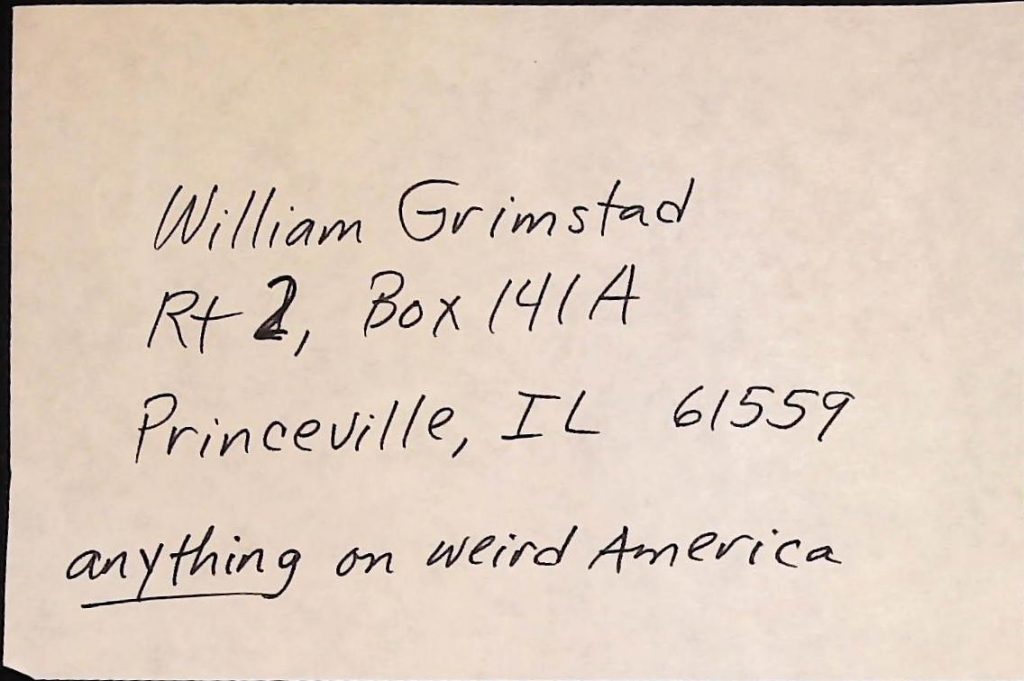 William Grimstad
Rt 2, Box 141A
Princeville, IL 61559
anything on weird America